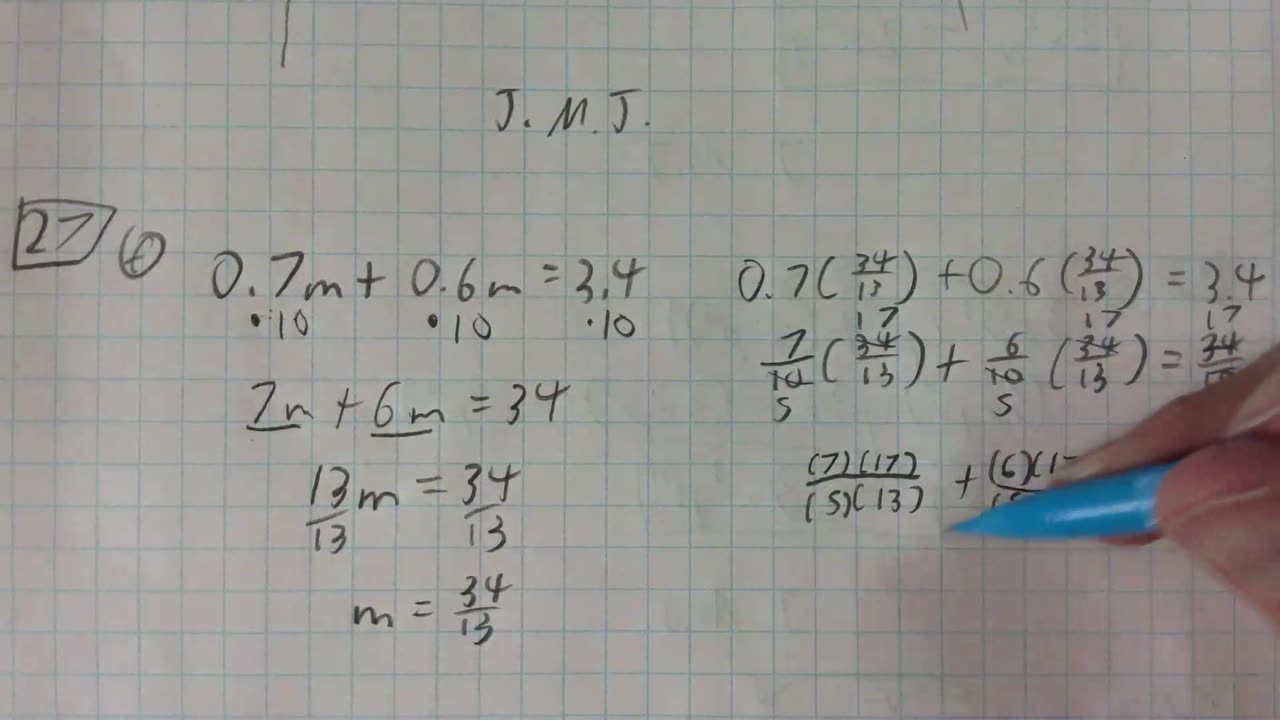 J.M.J.
27
0.7m + 0.6m = 3.4
•10 •10 •10
7m + 6m = 34
13m/13 = 34/13
m = 34/13
0.7(34/13) + 0.6(34/13) = 3.4
17 17 17
7/10(34/13) + 6/10(34/13) = 34/10
5 5
(7)(17)/(5)(13) + (6)(